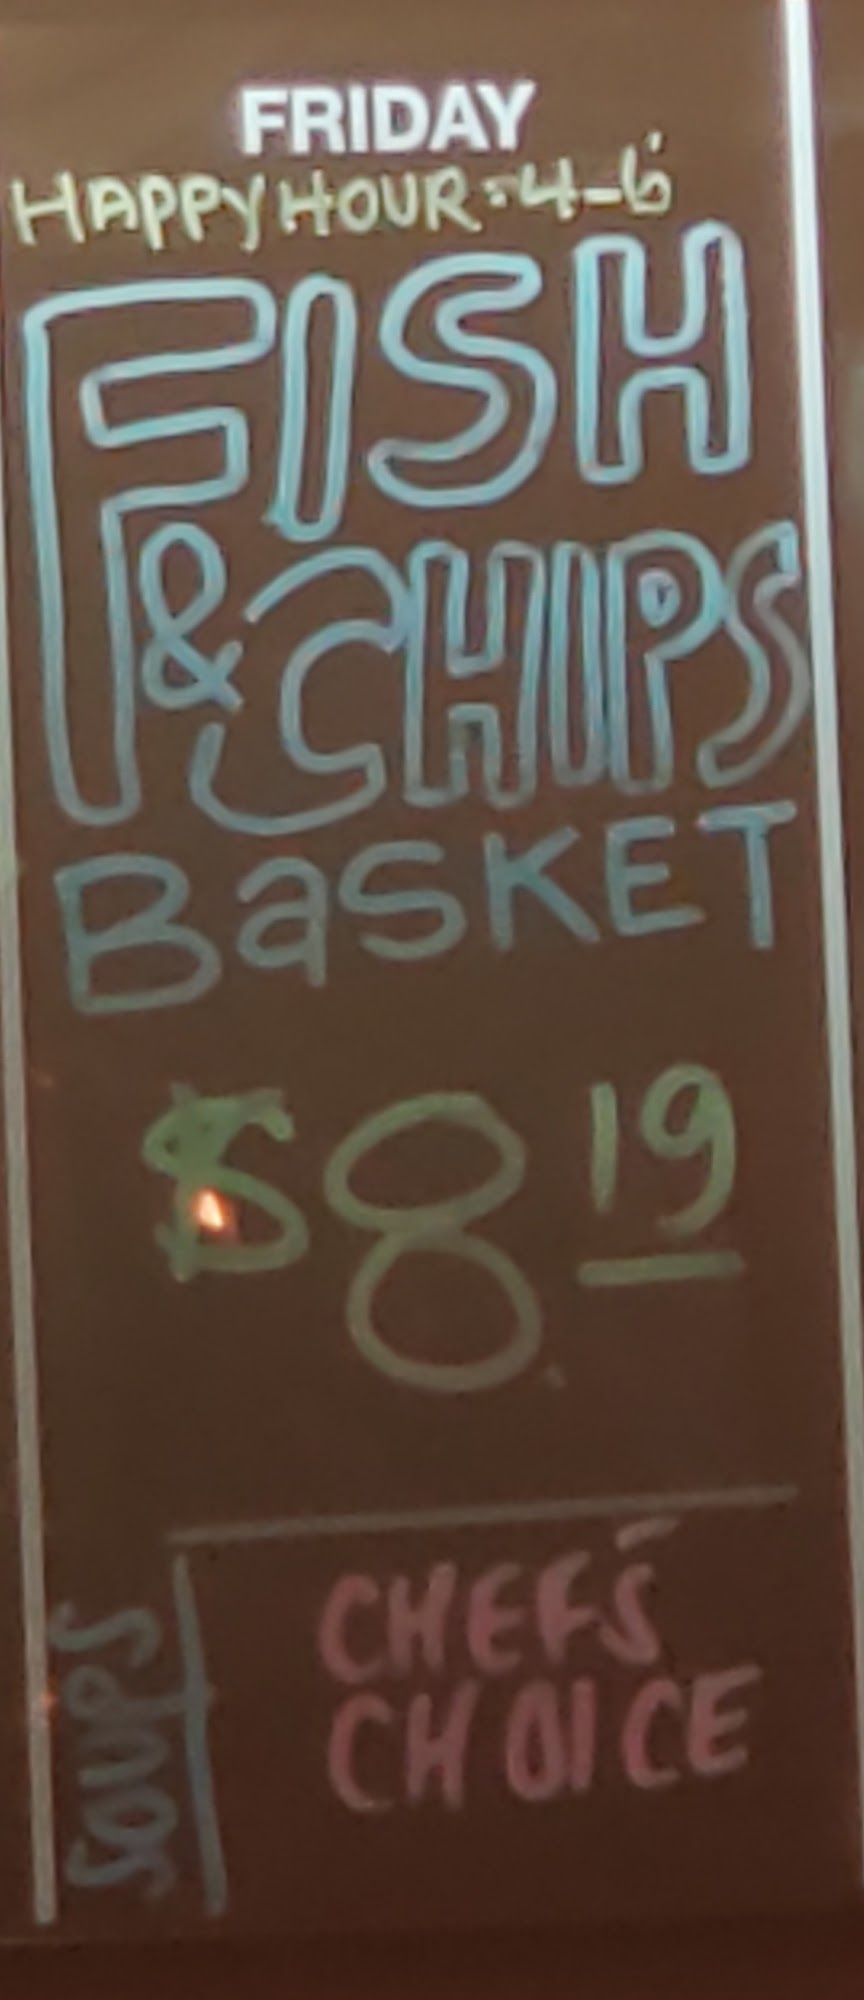 FRIDAY
HAPPY HOUR: 4-6
FISH
& CHIPS
BaSKET
$8.19
SOUPS
CHEF'S
CHOICE